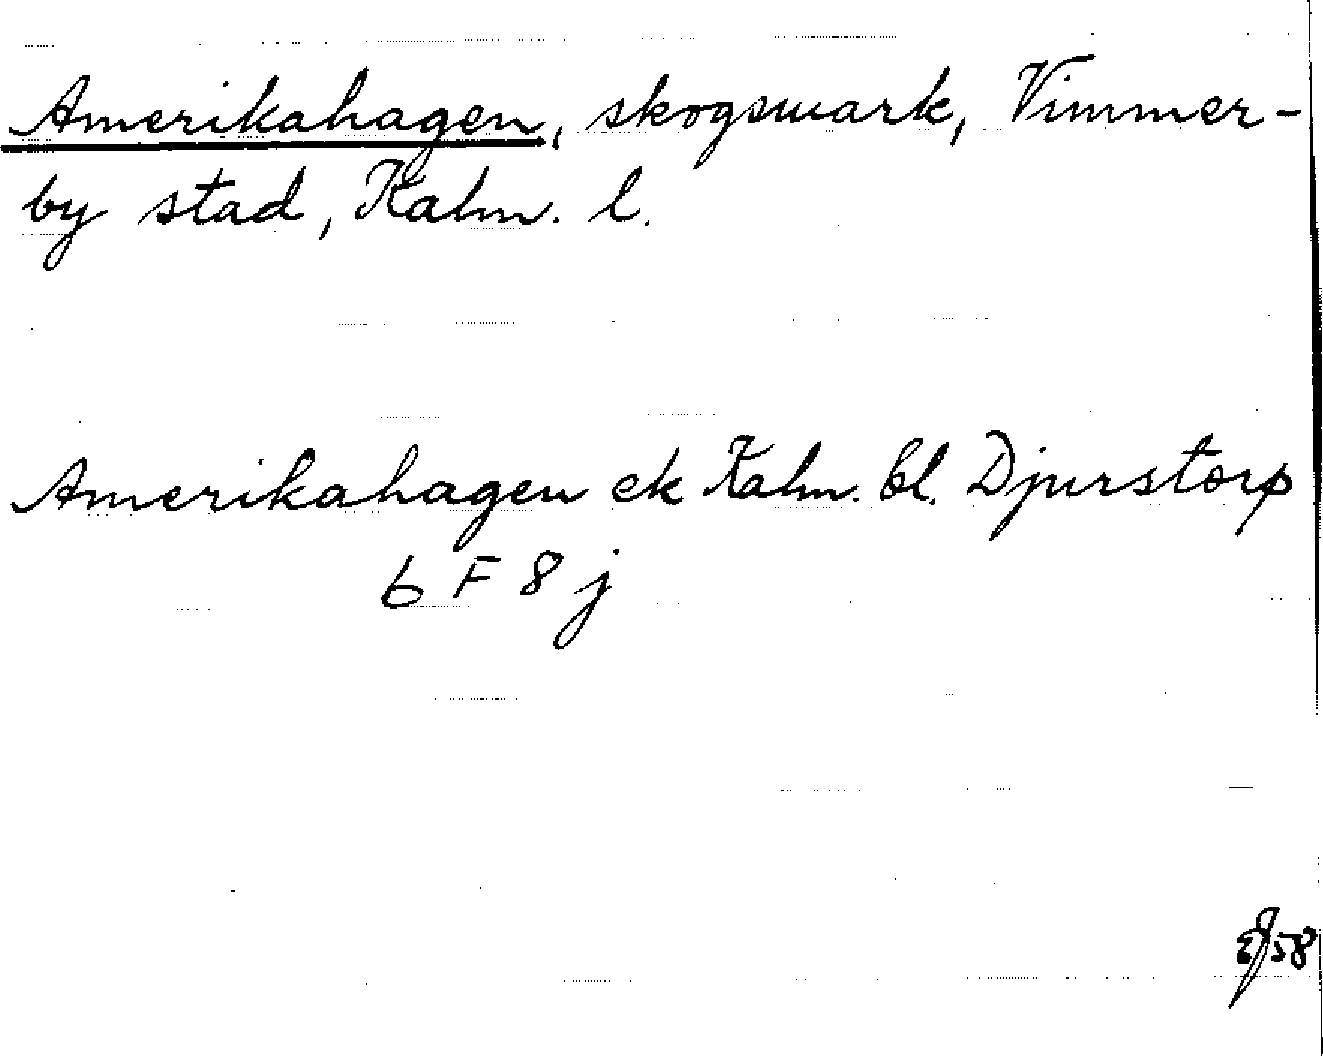 Amerikahagen, skogsmark, Vimmer-
by stad, Kalm. l.
Amerikahagen ek Kalm. bl. Djurstorp
6 F 8 j
58